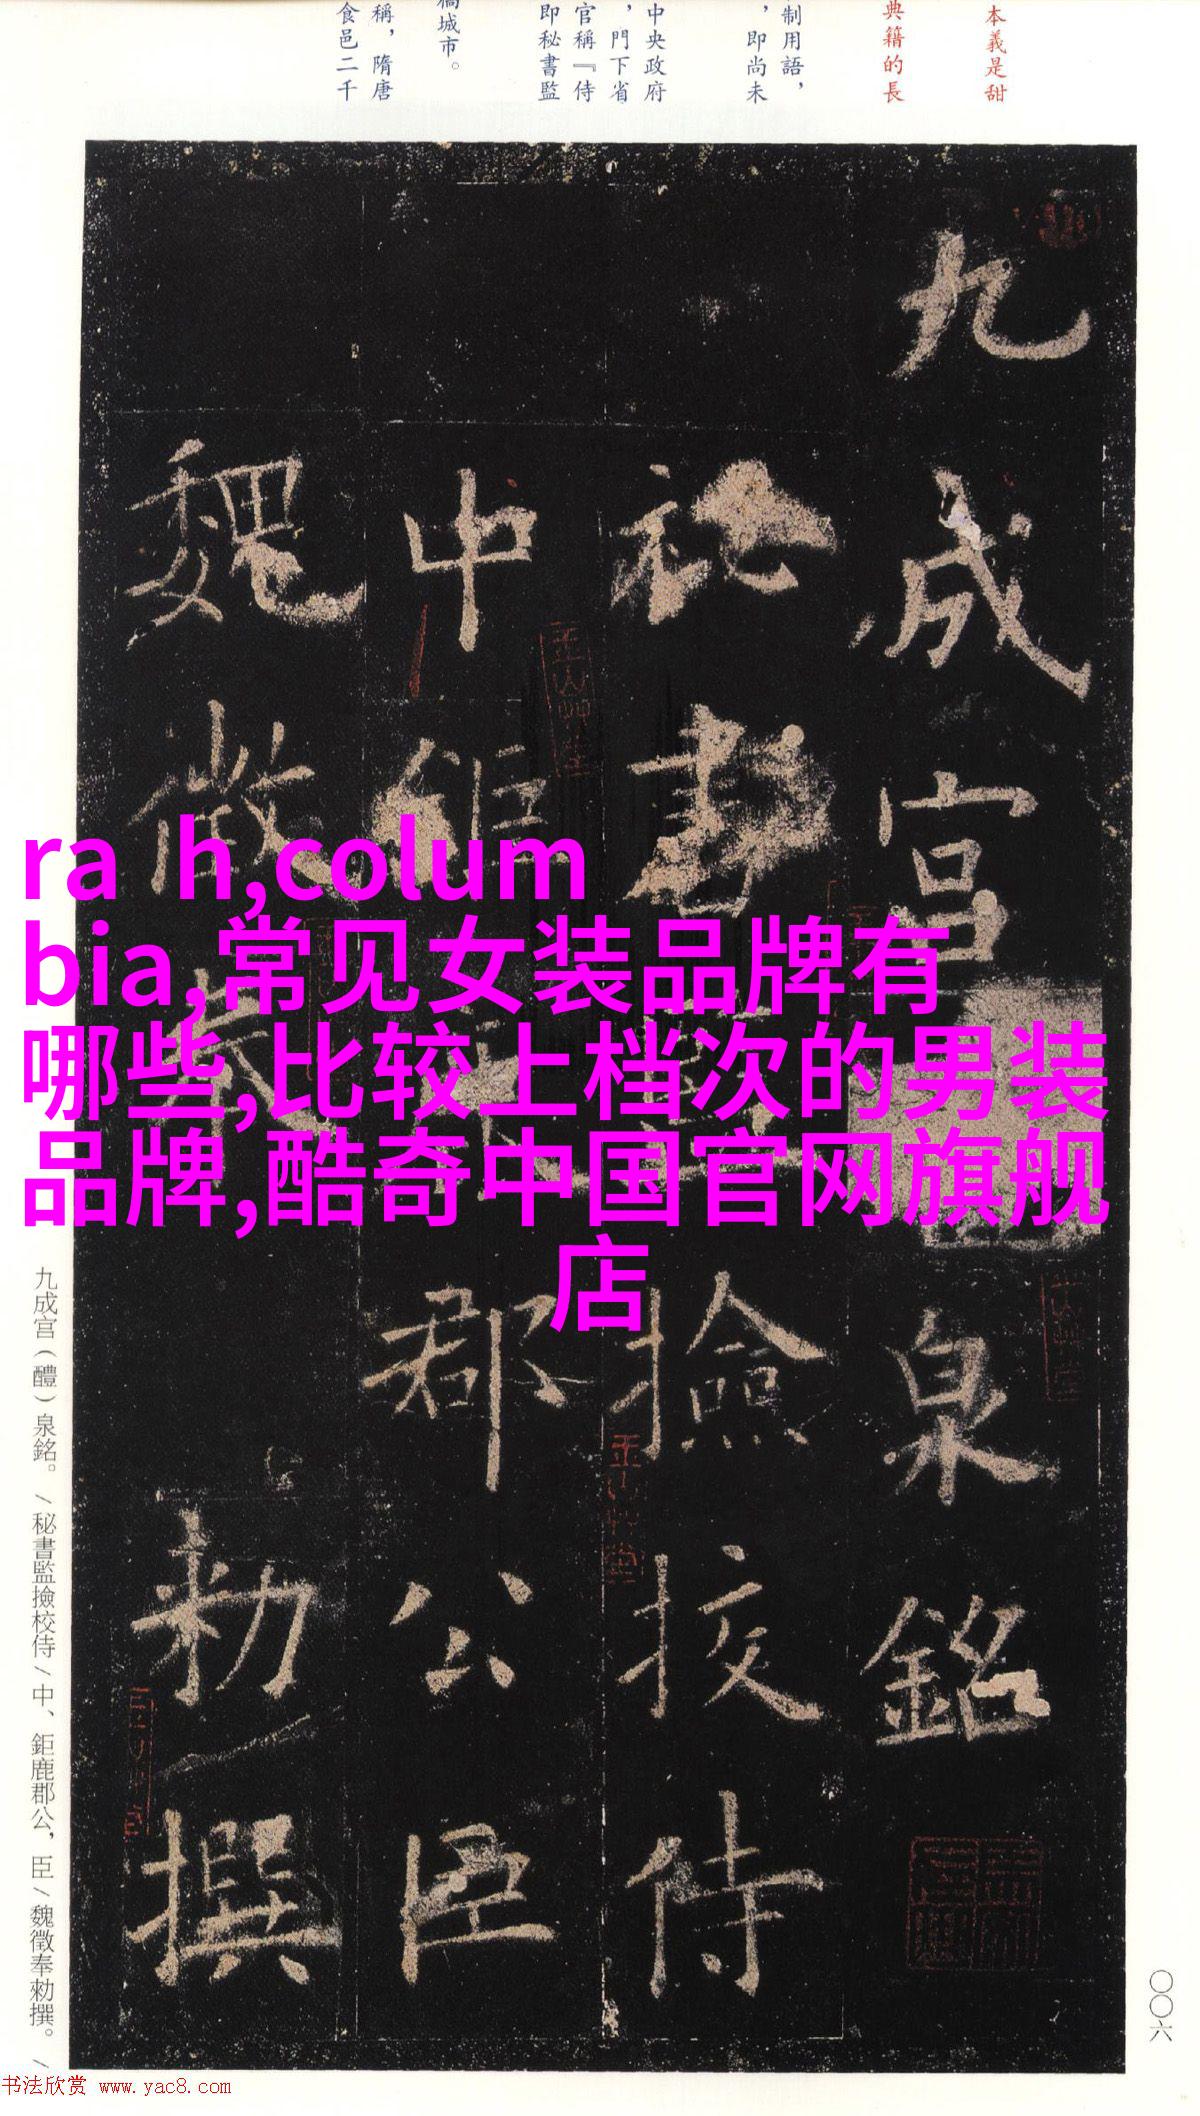 本義是甜
典籍的長
制用語，
，即尚未
中央政府
，門下省
官稱『侍
即秘書監
城市。
稱，隋唐
食邑二千
九成宮
泉銘
祕書
撿挍侍
中
郡公臣
魏徵
勑撰
ra h,colum
bia,常见女装品牌有
哪些,比较上档次的男装
品牌,酷奇中国官网旗舰
店
九成宮（醴）泉銘。/秘書監撿校侍/中、鉅鹿郡公，臣/魏徵奉勑撰。/
〇〇六
书法欣赏 www.yac8.com